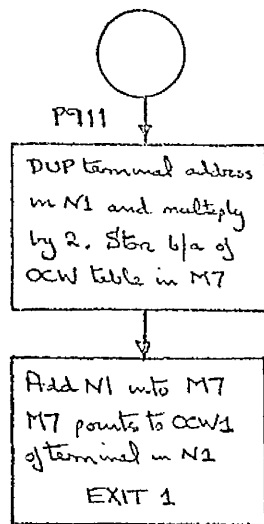 P911
DUP terminal address
in N1 and multiply
by 2. Store b/a of
OCW table in M7
Add N1 into M7
M7 points to OCW1
of terminal in N1
EXIT 1